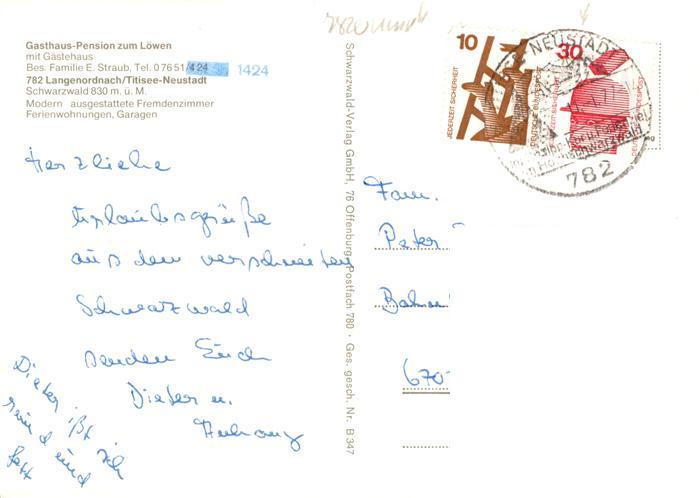 Gasthaus-Pension zum Löwen
mit Gästehaus
Bes. Familie E. Straub, Tel. 0 76 51/424 1424
782 Langenordnach/Titisee-Neustadt
Schwarzwald 830 m. ü. M.
Modern ausgestattete Fremdenzimmer
Ferienwohnungen, Garagen
Herzliche
Urlaubsgrüße
aus dem verschneiten
Schwarzwald
senden Euch
Dieter u.
Dieter ißt
sich
rund und
fett
Schwarzwald-Verlag GmbH, 76 Offenburg, Postfach 780 · Ges. gesch. Nr. B 347
10
JEDERZEIT SICHERHEIT
DEUTSCHE BUNDESPOST
30
NEUSTADT
782
Fam.
Peter
Bahn
670